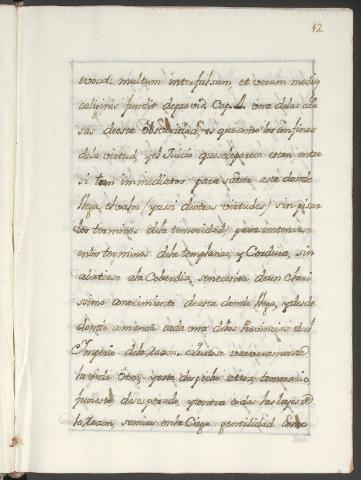 42
quod. multum interfalsum, et verum medij
caliginis fundit deprovid. Cap. 1. una delas cau
sas deesta Obscuridad, es que como los confines
dela virtud, y el Juicio que se le parece estan entre
si tan immediatos para saver asta donde
llega el valor (y assi de otras virtudes) sin pisar
los terminos dela temeridad; para contenerse
en los terminos dela templanza, y Cordura, sin
abatirse ala Cobardia, se necesita de un Clari
ssimo conocimiento de asta donde llega, y desde
donde comienza cada una delas Provincias del
Imperio dela Razon. Quitose
la vida Oton, y este despecho
funesto desesperado, y contra todas las leyes de
la Razon, se miro en la Ciega gentilidad como